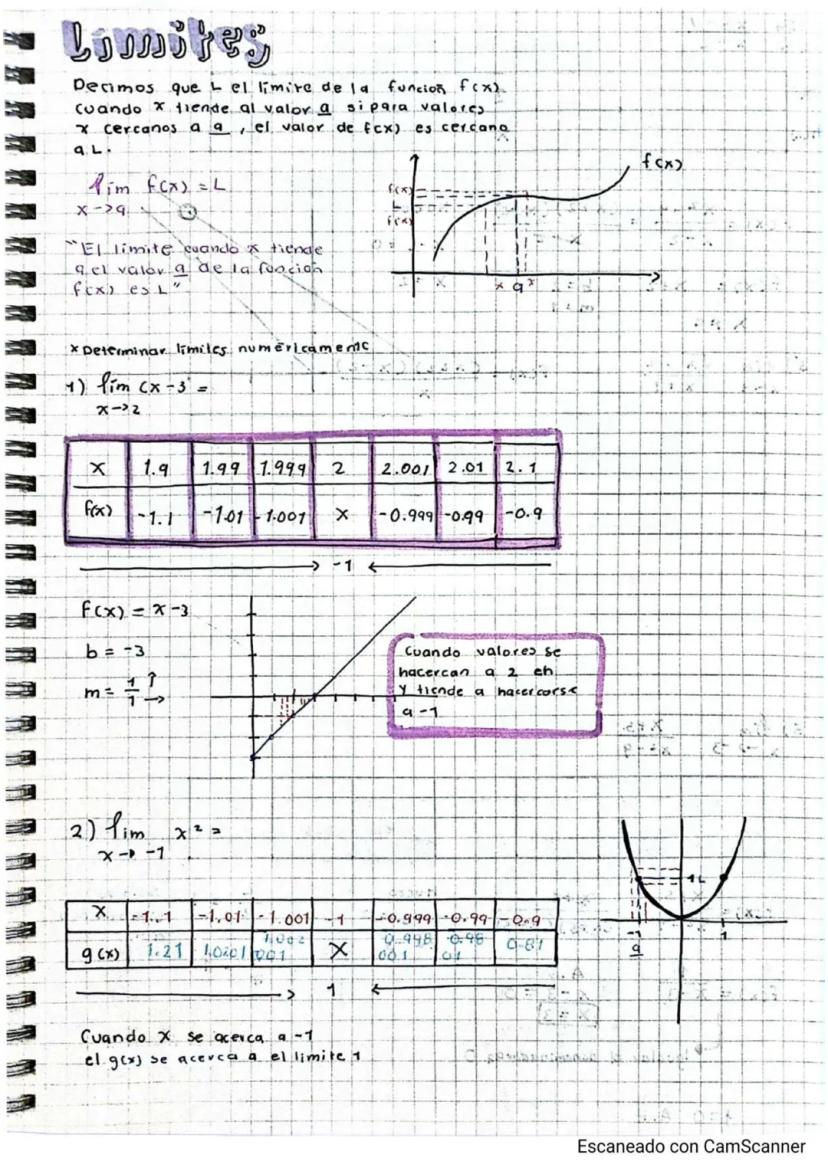 Límites
Decimos que L el límite de la función f(x)
cuando x tiende al valor a si para valores
x cercanos a a, el valor de f(x) es cercano
a L.
lím f(x) = L
x->a
"El límite cuando x tiende
a el valor a de la función
f(x) es L"
f(x)
f(x)
L
f(x)
x a x
* Determinar límites numéricamente
1) lím (x-3 =
x->2
x 1.9 1.99 1.999 2 2.001 2.01 2.1
f(x) -1.1 -1.01 -1.001 x -0.999 -0.99 -0.9
-1
f(x) = x-3
b = -3
m = 1/1
Cuando valores se
hacercan a 2 en
y tiende a hacercarse
a -1
2) lím x² =
x-> -1
x -1.1 -1.01 -1.001 -1 -0.999 -0.99 -0.9
g(x) 1.21 1.0201 1.002001 X 0.998001 0.9801 0.81
1
1 L
-1 1
a
Cuando x se acerca a -1
el g(x) se acerca a el límite 1
Escaneado con CamScanner